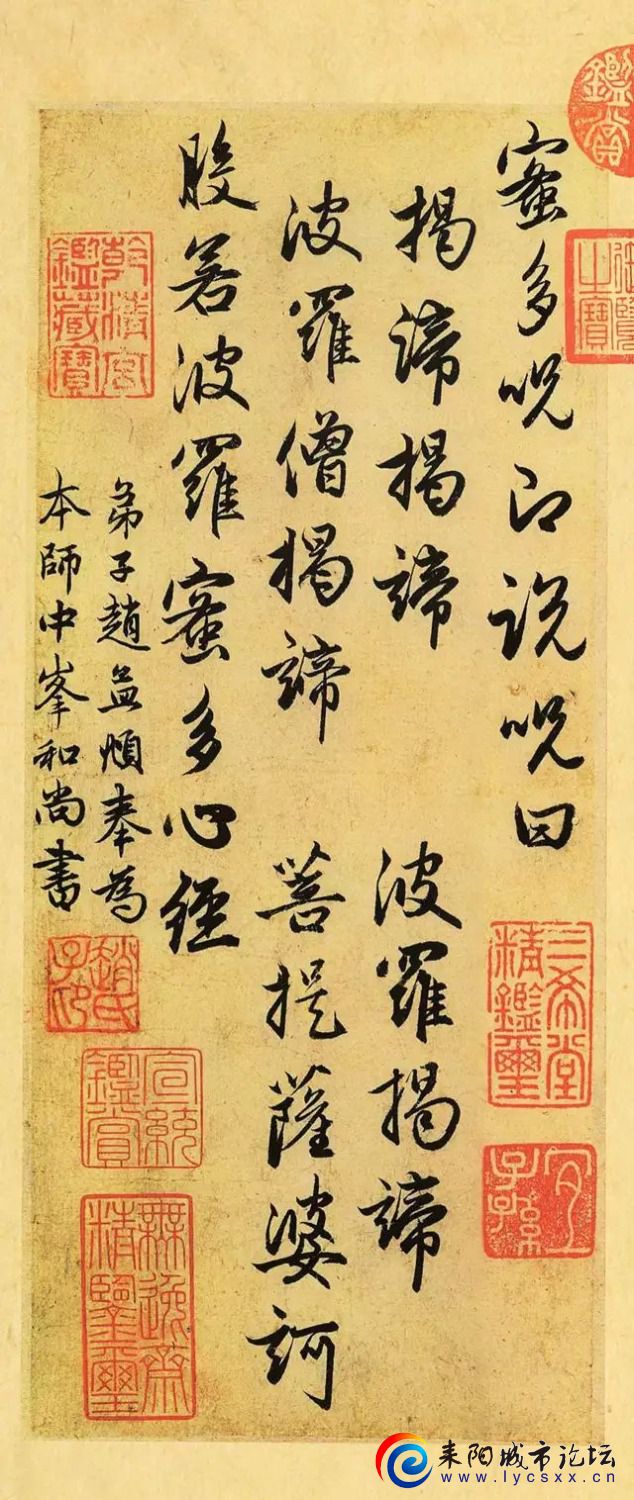 蜜多呪即說呪曰
揭諦揭諦　波羅揭諦
波羅僧揭諦　菩提薩婆訶
般若波羅蜜多心經
弟子趙孟頫奉為
本師中峯和尚書
鑑賞
御覽之寶
三希堂精鑑璽
宜子孫
乾清宮鑑藏寶
趙氏子昂
宣統鑑賞
無逸齋精鑑璽
耒阳城市论坛
www.lycsxx.cn